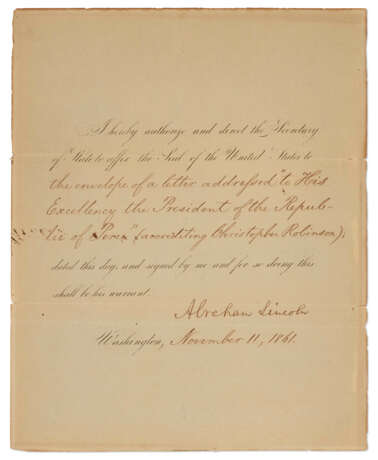 I hereby authorize and direct the Secretary
of State to affix the Seal of the United States to
the envelope of a letter addressed "to His
Excellency the President of the Repub-
lic of Peru" (accrediting Christopher Robinson);
dated this day, and signed by me and for so doing this
shall be his warrant.
Abraham Lincoln
Washington, November 11, 1861.